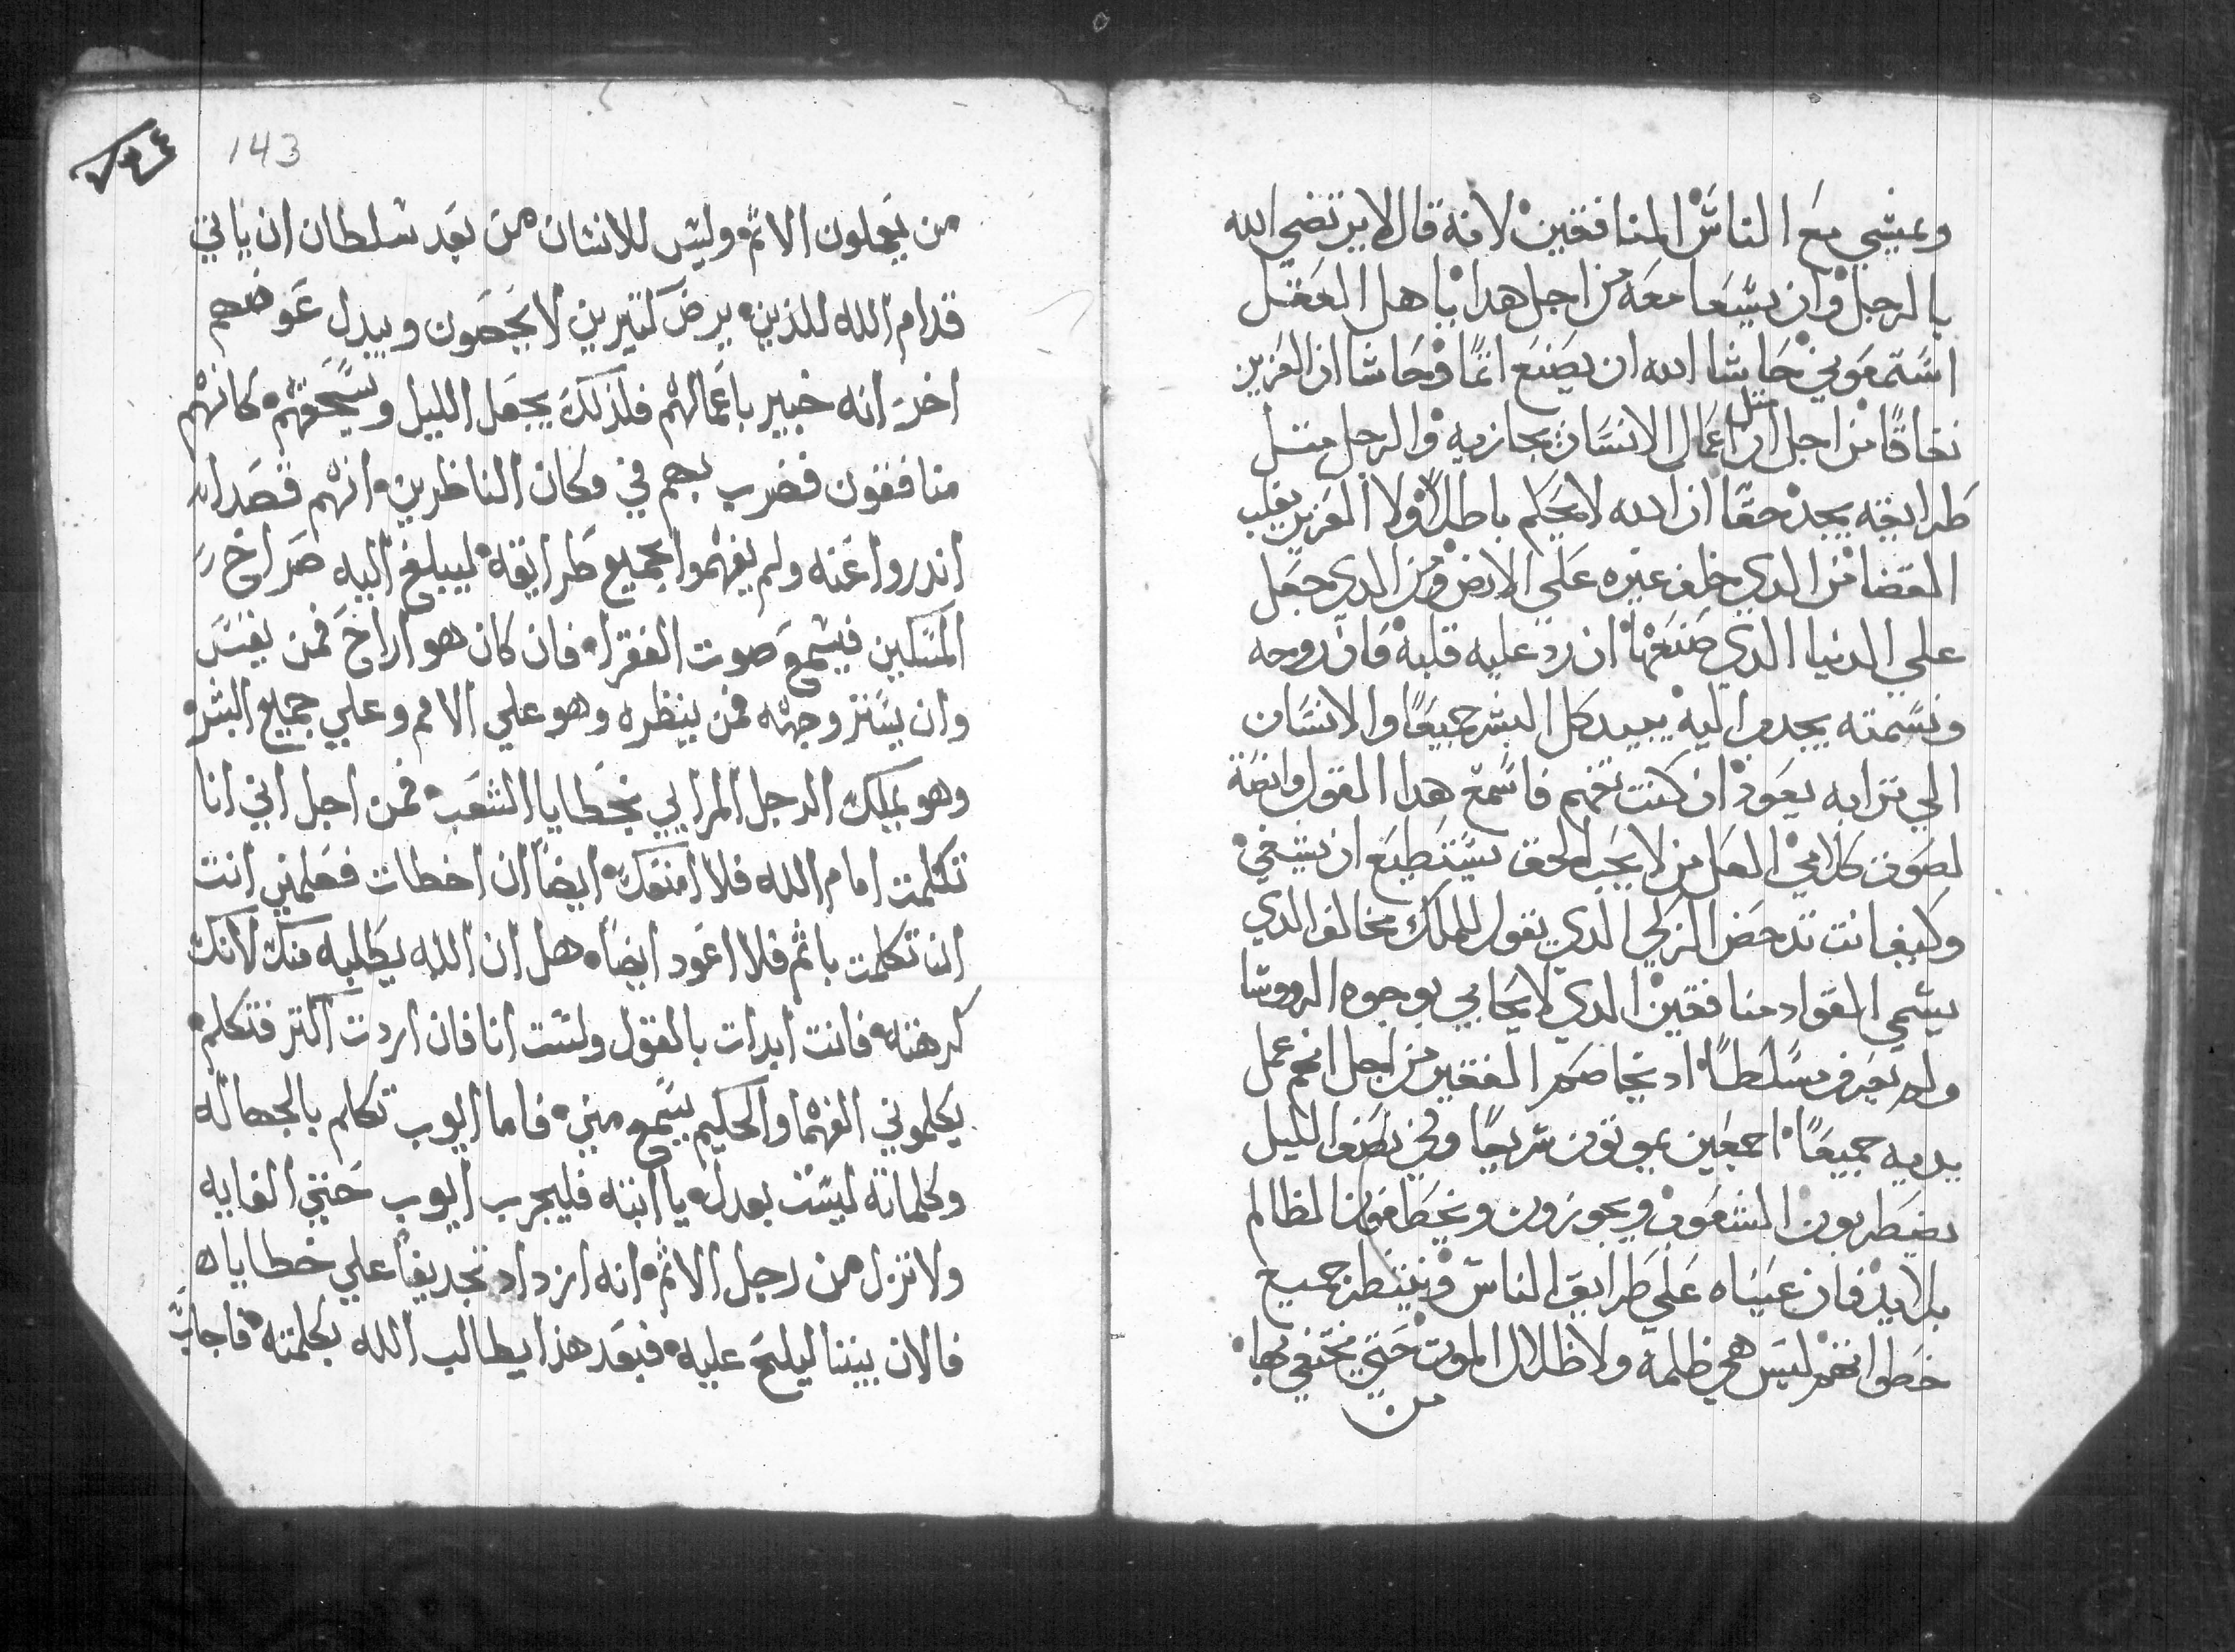 وعيشي مع الناس المنافقين لانه قال لا يرتضي الله
بالرجل وان يسعا معه من اجل هدا يا هل العقل
استمعوني حاشا الله ان يصنع اثما وحاشا ان العزيز
نفاقا من اجل ان مثل اعمال الانسان يجازيه والرجل مثل
طرايقه يجد حقا ان الله لا يحكم باطلا ولا العزيز يقلب
القضا من الدي خلف غيره علي الارض ومن الدي جعل
علي الدنيا الدي صنعها ان رد عليه قلبه فان روحه
ونسمته يجدها اليه يبيد كل البشر جميعا والانسان
الي ترابه يعود ان كنت تفهم فاسمع هدا القول وانصت
لصوت كلامي العل من لا يحب الحق يستطيع ان يشفي
وكيف انت تدحض الزكي الدي يقول للملك مخالف الدي
يسمي القواد منافقين الدي لا يحابي بوجوه الرووسا
ولم يعرف مسلطا اد يخاصم الفقير من اجل انهم عمل
يديه جميعا اجمعين يموتون سريعا وفي نصف الليل
يضطربون الشعوب ويجوزون ويخطفون الظالم
بلا يد فان عيناه علي طرايق الناس وينظر جميع
خطواتهم ليس هي ظلمة ولا ظلال الموت حتي يختفي بها
من
143
من يعملون الاثم وليس للانسان من بعد سلطان ان ياتي
قدام الله للدين يرض كثيرين لا يحصون ويبدل عوضهم
اخر انه خبير باعمالهم فلذلك يجعل الليل ويسحقهم كانهم
منافقون فضرب بهم في مكان الناظرين انهم قصدا
اندروا عنه ولم يفهموا بجميع طرايقه ليبلغ اليه صراخ
المسكين فيسمع صوت الفقرا فان كان هو اراح فمن يفتش
وان يستر وجهه فمن ينظره وهو علي الامم وعلي جميع البشر
وهو يملك الرجل المرايي بخطايا الشعب فمن اجل اني انا
تكلمت امام الله فلا امنعك ايضا ان اخطات فعلمني انت
انا تكلمت باثم فلا اعود ايضا هل ان الله يطلبه منك لانك
كرهته فانت ابدات بالقول ولست انا فان اردت اكثر فتكلم
يكلموني الفهما والحكيم يسمع مني فاما ايوب تكلم بالجهاله
وكلماته ليست بعدل يا ابته فليجرب ايوب حتي الغايه
ولا تزل من رجل الاثم انه ازداد تجديفا علي خطاياه
فالان بيننا ليلج عليه فبعد هذا يطالب الله بكلمته فاجاب